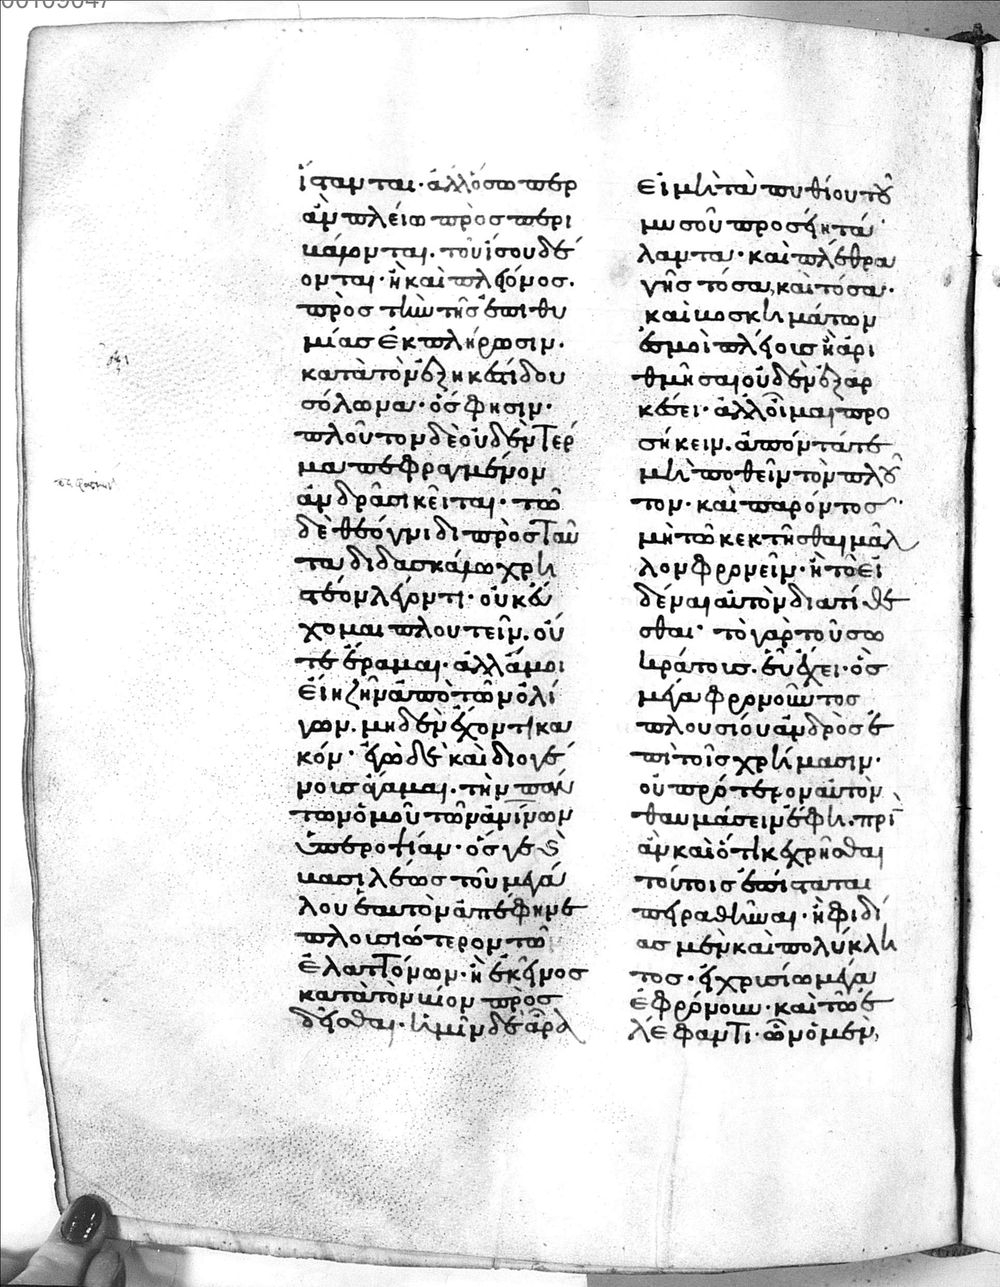 00109047
ἵστανται· ἀλλ' ὅσωπερ
ἂν πλείω προσπερι
βάλωνται. τοῦ ἴσου δέ
ονται· ἢ καὶ πλείονος.
πρὸς τὴν τῆς ἐπιθυ
μίας ἐκπλήρωσιν.
κατὰ τὸν ἐξηκεστίδου
σόλωνα· ὅς φησιν·
πλούτου δὲ οὐδὲν τέρ
μα πεφραγμένον
ἀνδράσι κεῖται· τῶ
δὲ θεόγνιδι πρὸς ταῦ
τα διδασκάλω χρη
στέον λέγοντι· οὐκ ἔ
ραμαι πλουτεῖν. οὔ
τε ἔραμαι. ἀλλά μοι
εἴη ζῆν ἀπὸ τῶν ὀλί
γων. μηδὲν ἔχοντι κα
κόν· ἐγὼ δὲ καὶ διογέ
νους ἄγαμαι. τὴν πάν
των ὁμοῦ τῶν ἀνθρώπων
ὑπεροψίαν· ὅς γε καὶ
βασιλέως τοῦ μεγά
λου ἑαυτὸν ἀπέφηνε
πλουσιώτερον τῶ
ἐλαττόνων. ἢ ἐκεῖνος
κατὰ τὸν βίον προσ
δεῖσθαι. ἡμῖν δὲ ἄρα
εἰ μὴ τὰ πυθίου τοῦ
μυσοῦ προσείη τά
λαντα· καὶ πλέθρα
γῆς τόσα, καὶ τόσα·
καὶ βοσκημάτων
ἐσμοὶ πλείους ἢ ἀρι
θμῆσαι οὐδὲν ἐξαρ
κέσει· ἀλλ' οἶμαι προ
σήκειν. ἀπόντα τε
μὴ ποθεῖν τὸν πλοῦ
τον. καὶ παρόντος·
μὴ τῶ κεκτῆσθαι μᾶλ
λον φρονεῖν· ἢ τῶ εἰ
δέναι αὐτὸν διατίθε
σθαι· τὸ γὰρ τοῦ σω
κράτους. εὖ ἔχει· ὃς
μέγα φρονοῦντος
πλουσίου ἀνδρὸς ἐ
πὶ τοῖς χρήμασιν·
οὐ πρότερον αὐτὸν
θαυμάσειν ἔφη. πρὶ
ἂν καὶ ὅτι κεχρῆσθαι
τούτοις ἐπίσταται
πειραθῆναι· ἢ φιδί
ας μὲν καὶ πολύκλη
τος. εἰ χρυσίω μέγα
ἐφρόνουν. καὶ τῶ ἐ
λέφαντι· ὧν ὁ μὲν,